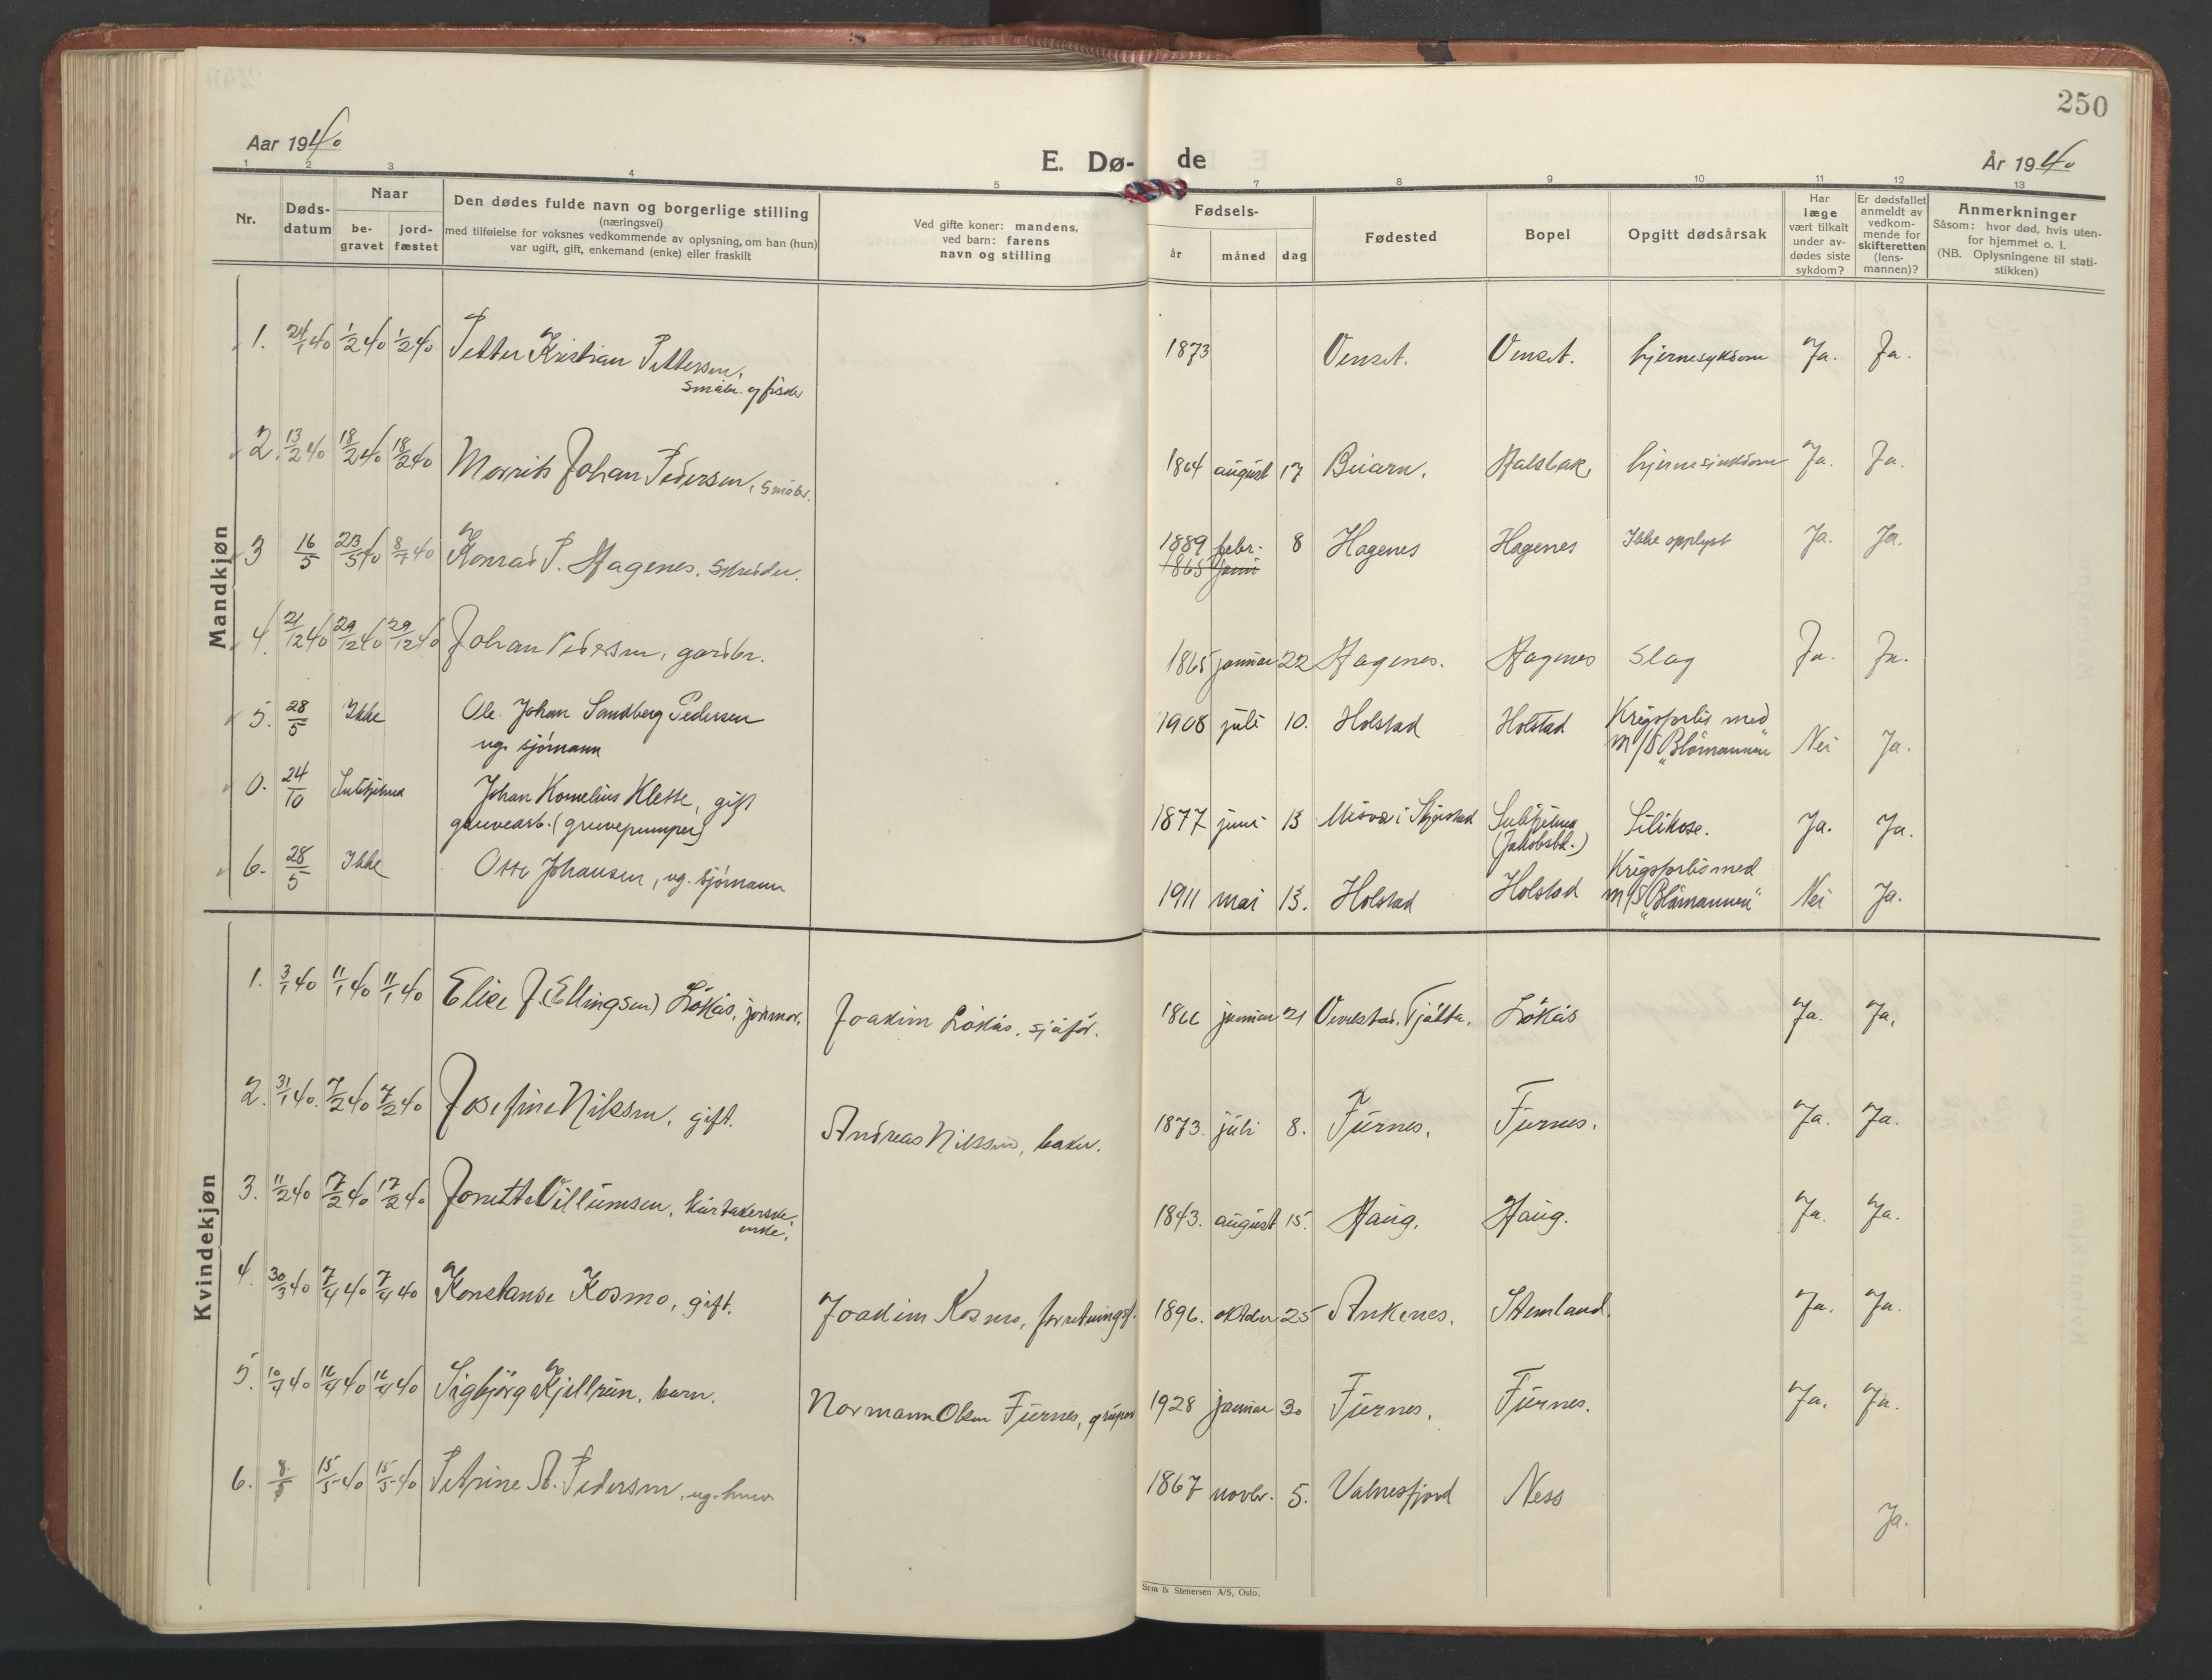 250
Aar 1940
E. Dø-
de
År 1940
1 2 3 4 5 7 8 9 10 11 12 13
Nr.
Døds-
datum
Naar
be-
gravet
jord-
fæstet
Den dødes fulde navn og borgerlige stilling
(næringsvei)
med tilføielse for voksnes vedkommende av oplysning, om han (hun)
var ugift, gift, enkemand (enke) eller fraskilt
Ved gifte koner: mandens,
ved barn: farens
navn og stilling
Fødsels-
år måned dag
Fødested
Bopel
Opgitt dødsårsak
Har
læge
vært tilkalt
under av-
dødes siste
sykdom?
Er dødsfallet
anmeldt av
vedkom-
mende for
skifteretten
(lens-
mannen)?
Anmerkninger
Såsom: hvor død, hvis uten-
for hjemmet o. l.
(NB. Oplysningene til stati-
stikken)
Mandkjøn
1. 24/1 40 1/2 40 1/2 40 Petter Kristian Pettersen, 1873 Venset. Venset. hjernesykdom Ja. Ja.
småbr. og fisker
2. 13/2 40 18/2 40 18/2 40 Morits Johan Pedersen, småbr. 1864 august 17 Beiarn. Halsbak hjernesykdom Ja. Ja.
3 16/5 23/5 40 8/7 40 Konrad P. Hagenes. Skredder. 1889 febr. 8 Hagenes Hagenes Ikke opplyst Ja. Ja.
1865 juni
4. 21/12 40 29/12 40 29/12 40 Johan Pedersen, gardbr. 1865 januar 22 Hagenes. Hagenes Slag Ja. Ja.
5. 28/5 Ikke Ole Johan Sandberg Pedersen 1908 juli 10. Holstad Holstad Krigsforlis med
ug. sjömann M/S "Blåmannen" Nei Ja.
0. 24/10 Sulitjelma Johan Kornelius Klette, gift 1877 juni 13 Misvær i Skjerstad Sulitjelma Silikose. Ja. Ja.
gruvearb. (gruvepumper) (Jakobsbk.)
6. 28/5 Ikke Otto Johansen, ug. sjömann 1911 mai 13. Holstad Holstad Krigsforlis med
M/S "Blåmannen" Nei Ja.
Kvindekjøn
1. 3/1 40 11/1 40 11/1 40 Elise J. (Ellingsen) Lökås, jormor. Joakim Lökås, sjåför. 1866 januar 21 Vevelstad, Tjötta. Lökås Ja. Ja.
2. 31/1 40. 7/2 40 7/2 40 Josefine Nilssen, gift. Andreas Nilssen, baker. 1873. juli 8. Furnes. Furnes. Ja. Ja.
3. 11/2 40 17/2 40 17/2 40 Jonette Villumsen, kårtakerske, 1843. august 15. Haug. Haug. Ja. Ja.
enke.
4. 30/3 40 7/4 40 7/4 40 Konstanse Kosmo, gift. Joakim Kosmo, forretningsf. 1896. oktober 25 Ankenes. Stemland. Ja. Ja.
5. 10/4 40 16/4 40 16/4 40 Sigbjörg Kjellrun, barn. Normann Olsen Furnes, 1928 januar 30 Furnes. Furnes. Ja. Ja.
6. 8/5 15/5 40 15/5 40 Petrine A. Pedersen, ug. 1867 novbr. 5. Valnesfjord Ness
Ja.
Sem & Stenersen A/S, Oslo.